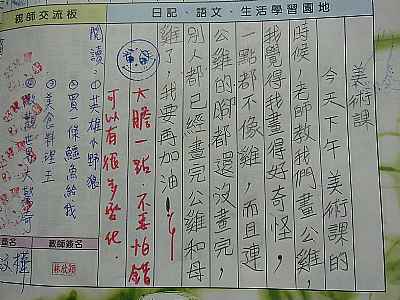 日記、語文、生活學習園地
美術課
今天下午美術課的
時候，老師教我們畫公雞，
我覺得我畫得好奇怪，
一點都不像雞，而且連
公雞的腳都還沒畫完，
別人都已經畫完公雞和母
雞了，我要再加油！
大膽一點，不要怕錯
可以有很多變化。
親師交流板
閱讀：①英雄小野狼
②買一條鱷魚給我
③美食料理王
教師簽名
林欣穎